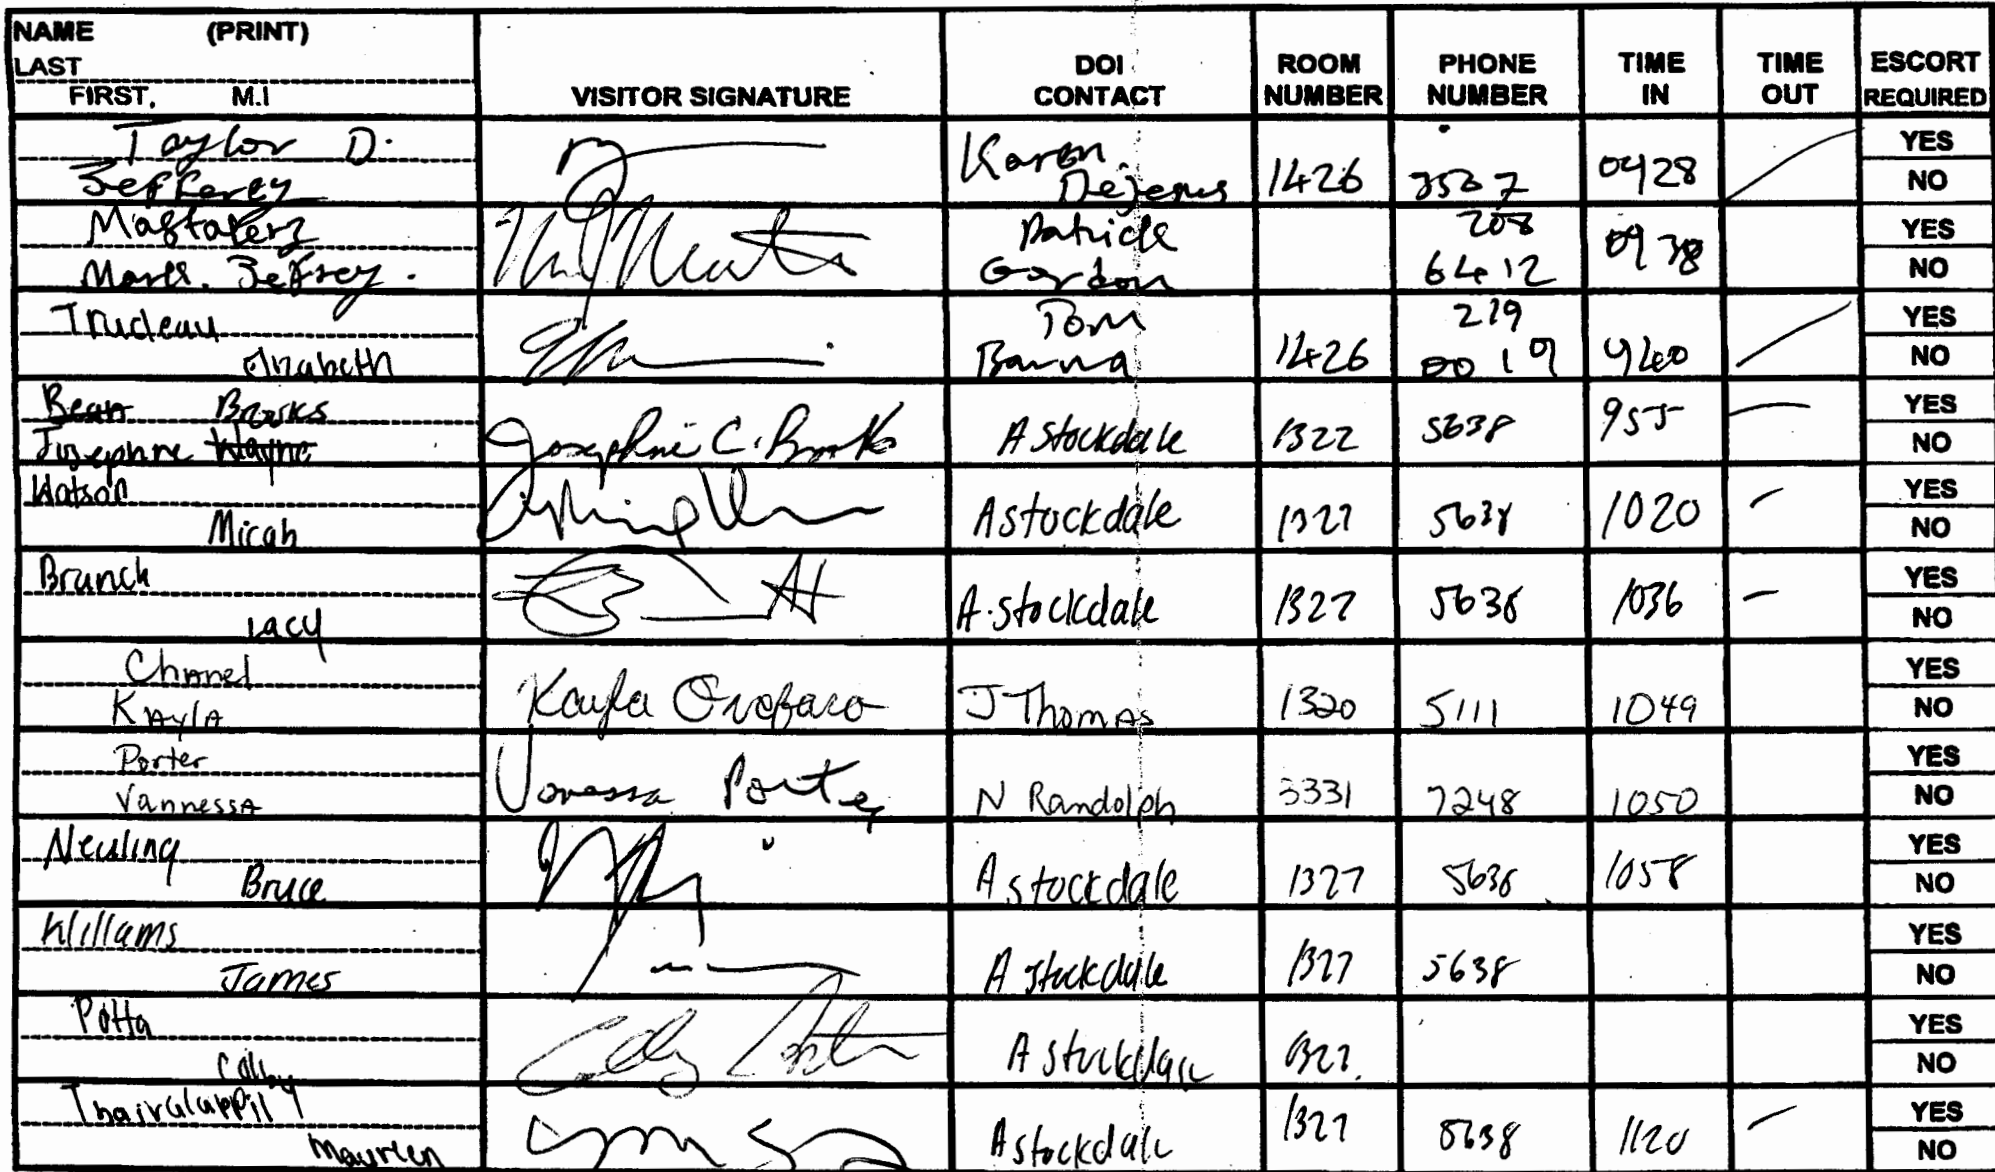 NAME (PRINT)
LAST
FIRST, M.I
VISITOR SIGNATURE
DOI
CONTACT
ROOM
NUMBER
PHONE
NUMBER
TIME
IN
TIME
OUT
ESCORT
REQUIRED
Taylor D.
Jefferey
Karen
Dejesus
1426
0928
YES
NO
Jeffrey
Patrick
Gordon
208
6412
0938
YES
NO
Trudeau
Elizabeth
Tom
1426
219
0019
940
YES
NO
Bean Brooks
Josephine Wayne
Josephine C. Brooks
A Stockdale
1322
5638
955
YES
NO
Watson
Micah
A Stockdale
1327
5638
1020
YES
NO
Branch
Lacy
A. Stockdale
1327
5638
1036
YES
NO
Chanel
KAylA
Kayla
J Thomas
1320
5111
1049
YES
NO
Porter
VannessA
Vanessa Porter
N Randolph
3331
7248
1050
YES
NO
Neusling
Bruce
A Stockdale
1327
5638
1058
YES
NO
Williams
James
A Stockdale
1327
5638
YES
NO
Colby
A Stockdale
1327
YES
NO
Maureen
A Stockdale
1327
5638
1120
YES
NO